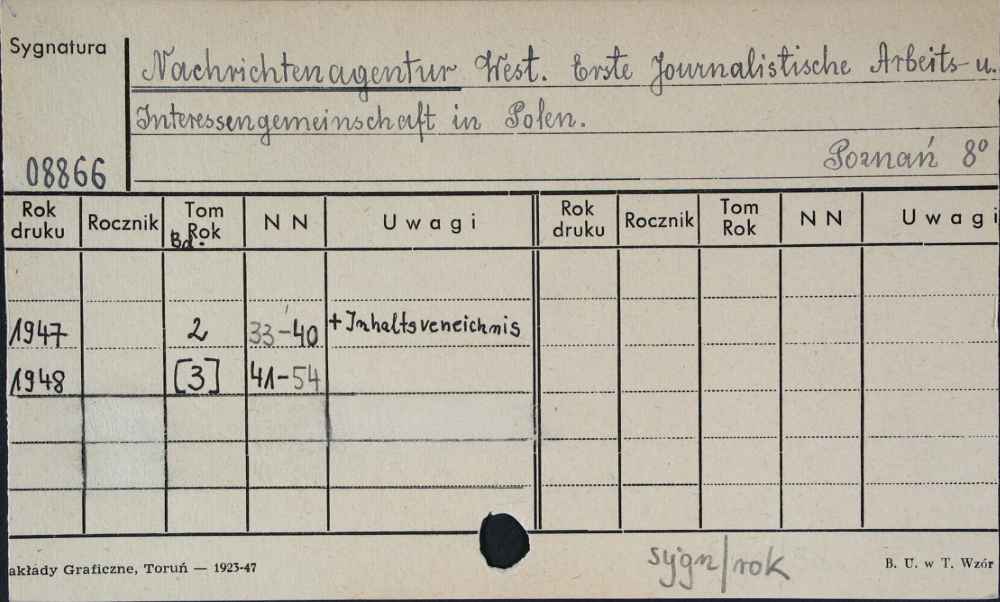 Sygnatura
Nachrichtenagentur West. Erste Journalistische Arbeits- u.
Interessengemeinschaft in Polen.
08866
Poznań 8°
Rok druku Rocznik Tom Rok Bd. N N Uwagi Rok druku Rocznik Tom Rok N N Uwagi
1947 2 33-40 + Inhaltsverzeichnis
1948 [3] 41-54
sygn/rok
akłady Graficzne, Toruń — 1923-47 B. U. w T. Wzór